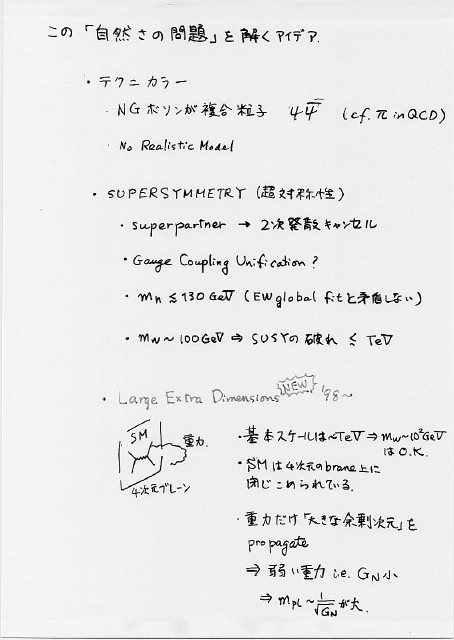 この「自然さの問題」を解くアイデア.
・テクニカラー
・NGボソンが複合粒子 ΨΨ̅ (cf. π in QCD)
・No Realistic Model
・SUPERSYMMETRY (超対称性)
・superpartner → 2次発散キャンセル
・Gauge Coupling Unification?
・mH ≲ 130 GeV (EW global fit と矛盾しない)
・mW ~ 100 GeV ⇒ SUSYの破れ ≲ TeV
・Large Extra Dimensions NEW '98~
SM 重力
4次元ブレーン
・基本スケールは~TeV ⇒ mW~10²GeV
はO.K.
・SMは4次元のbrane上に
閉じこめられている.
・重力だけ「大きな余剰次元」を
propagate
⇒ 弱い重力 i.e. GN 小
⇒ mpl ~ 1/√GN が大.